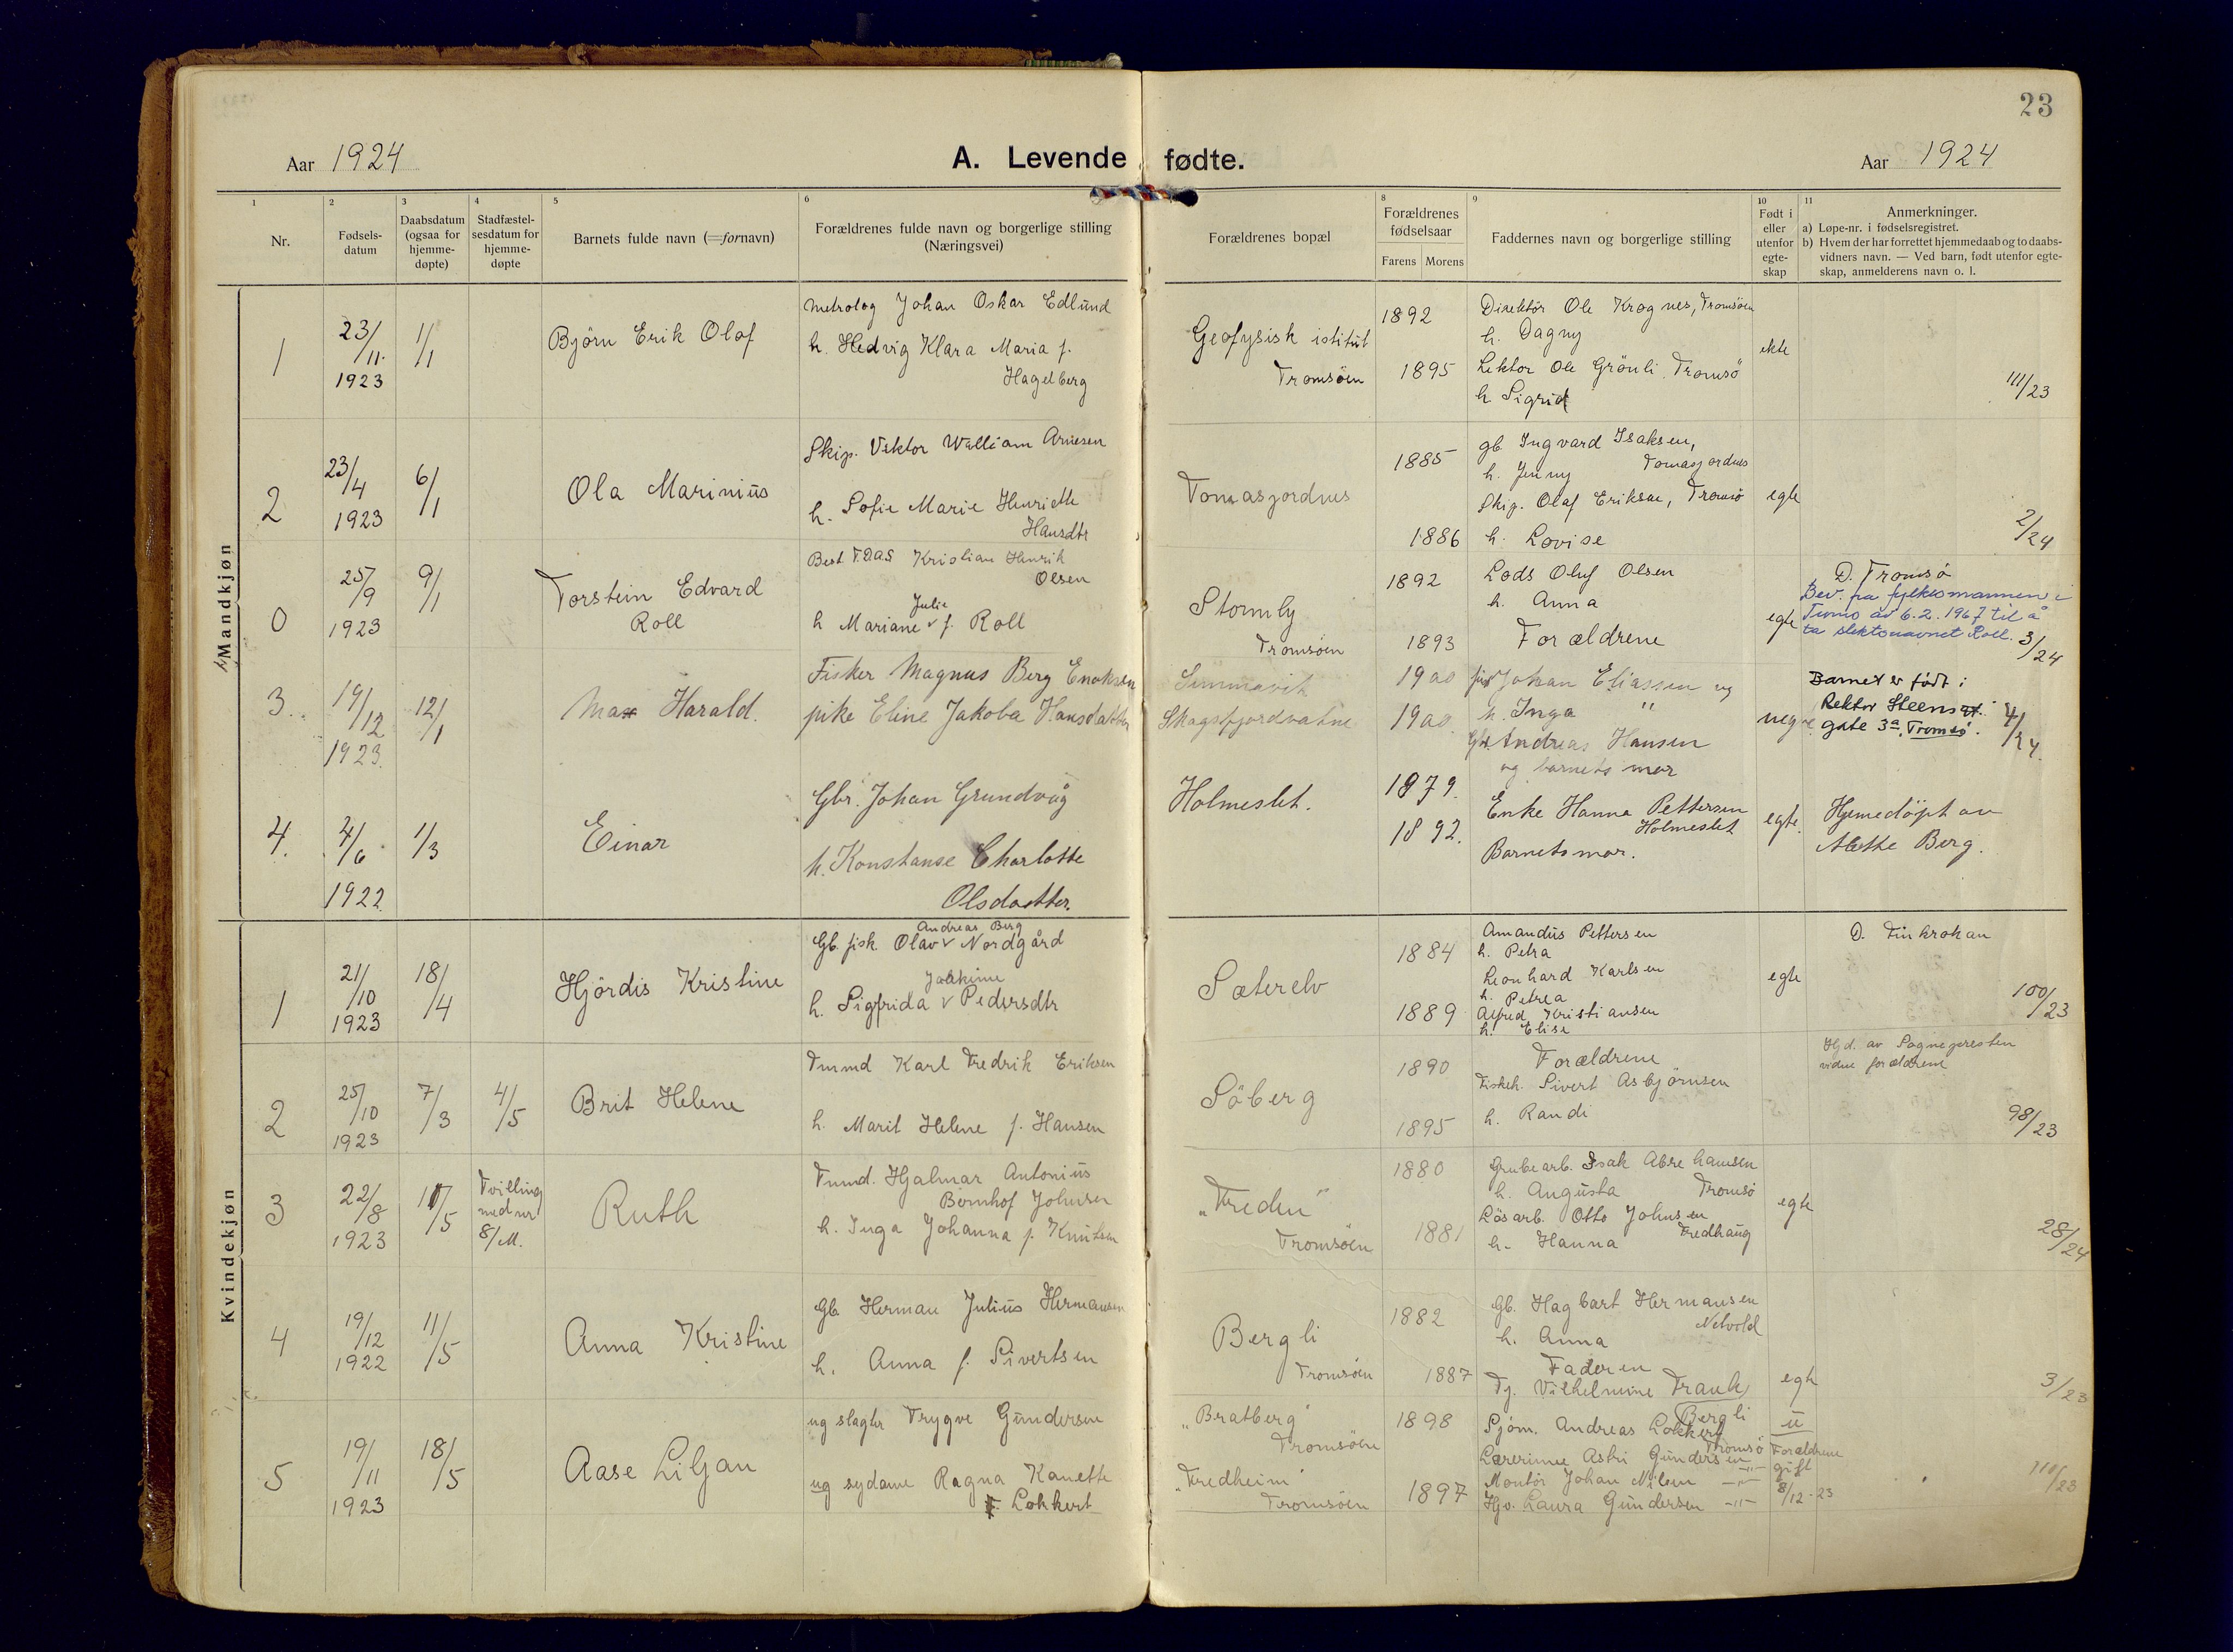 23
Aar 1924
A. Levende fødte.
Aar 1924
1
Nr.
2
Fødsels-
datum
3
Daabsdatum
(ogsaa for
hjemme-
døpte)
4
Stadfæstel-
sesdatum for
hjemme-
døpte
5
Barnets fulde navn (=fornavn)
6
Forældrenes fulde navn og borgerlige stilling
(Næringsvei)
Forældrenes bopæl
8
Forældrenes
fødselsaar
Farens Morens
9
Faddernes navn og borgerlige stilling
10
Født i
eller
utenfor
egte-
skap
11
Anmerkninger.
a) Løpe-nr. i fødselsregistret.
b) Hvem der har forrettet hjemmedaab og to daabs-
vidners navn. — Ved barn, født utenfor egte-
skap, anmelderens navn o. l.
Mandkjøn
1
23/11.
1923
1/1
Björn Erik Olaf
Metrolog Johan Oskar Edlund
h. Hedvig Klara Maria f.
Hagelberg
Geofysisk istitut
Tromsöen
1892
1895
Direktör Ole Krognes, Tromsöen
h. Dagny
Lektor Ole Grönli Tromsö
h. Sigrid
ekte
111/23
2
23/4
1923
6/1
Ola Marinius
Skip. Viktor William Arnesen
h. Sofie Marie Henriette
Hansdtr
Tomasjordnes
1885
1886
gb. Ingvard Isaksen,
h. Jenny Tomasjordnes
Skip. Olaf Eriksen, Tromsö
h. Lovise
egte
2/24
0
25/9
1923
9/1
Torstein Edvard
Roll
Best. T.D.A.S. Kristian Henrik
Olsen
Julie
h Mariane v f. Roll
Stormly
Tromsöen
1892
1893
Lods Oluf Olsen
h. Anna
Forældrene
egte
D. Tromsö
Bev. fra fylkesmannen i
Troms av 6.2.1967 til å
ta slektsnavnet Roll.
3/24
3.
19/12
1923.
12/1
Max Harald.
Fisker Magnus Berg Enoksen
pike Eline Jakoba Hansdatter
Simmavik
Skagsfjordvatne
19a0
19a0.
Johan Eliassen og
h. Inga "
Andreas Hansen
og barnets mor
uegte
Barnet er født i
Rektor Steens
gate 3a, Tromsø.
4/24.
4.
4/6
1922
1/3
Einar
Gbr. Johan Grundvåg
h. Konstanse Charlotte
Olsdatter.
Holmeslet.
1879.
1892.
Enke Hanna Pettersen
Holmeslet
Barnets mor.
egte.
Hjemedöpt av
Alette Berg.
Kvindekjøn
1
21/10
1923
18/4
Hjördis Kristine
Andreas Berg
Gb. fisk Olav v Nordgård
Joakime
h. Sigfrida v Pedersdtr
Sæterelv
1884
1889
Amandus Pettersen
h. Petra
Leonhard Karlsen
h. Petrea
Alfred Kristiansen
h. Elise
egte
D. Finkrokan
100/23
2
25/10
1923
7/3
4/5
Brit Helene
Tmmd Karl Fredrik Eriksen
h. Marit Helene f. Hansen
Söberg
1890
1895
Forældrene
Fiskeh. Sivert Asbjörnsen
h. Randi
Hjd. av Sognepresten
vidne forældrene
98/23
3
22/8
1923
17/5
Tvilling
med nr
8/M.
Ruth
Tmmd. Hjalmar Antonius
Bernhof Johnsen
h. Inga Johanna f. Knutsen
„Freden”
Tromsöen
1880
1881
Grubearb. Isak Abrehamsen
h. Augusta Tromsö
Lösarb. Otto Johnsen
h. Hanna Fredhaug
egte
28/24
4
19/12
1922
11/5
Anna Kristine
Gb Herman Julius Hermansen
h. Anna f. Sivertsen
Bergli
Tromsöen
1882
1887
Gb. Hagbart Hermansen
h. Anna
Faderen
Tj. Vilhelmine Frank
Bergli
egte
3/23
5
19/11
1923
18/5
Aase Liljan
ug slagter Trygve Gundersen
ug sydame Ragna Kanette
Lokkert
„Bratberg”
Tromsöen
„Fredheim”
Tromsöen
1898
1897
Sjöm. Andreas Lokkert
Tromsö
Lærerinne Astri Gundersen -"-
Montör Johan Nilsen -"-
Hjv. Laura Gundersen -"-
u
Forældrene
gift
8/12-23
110/23